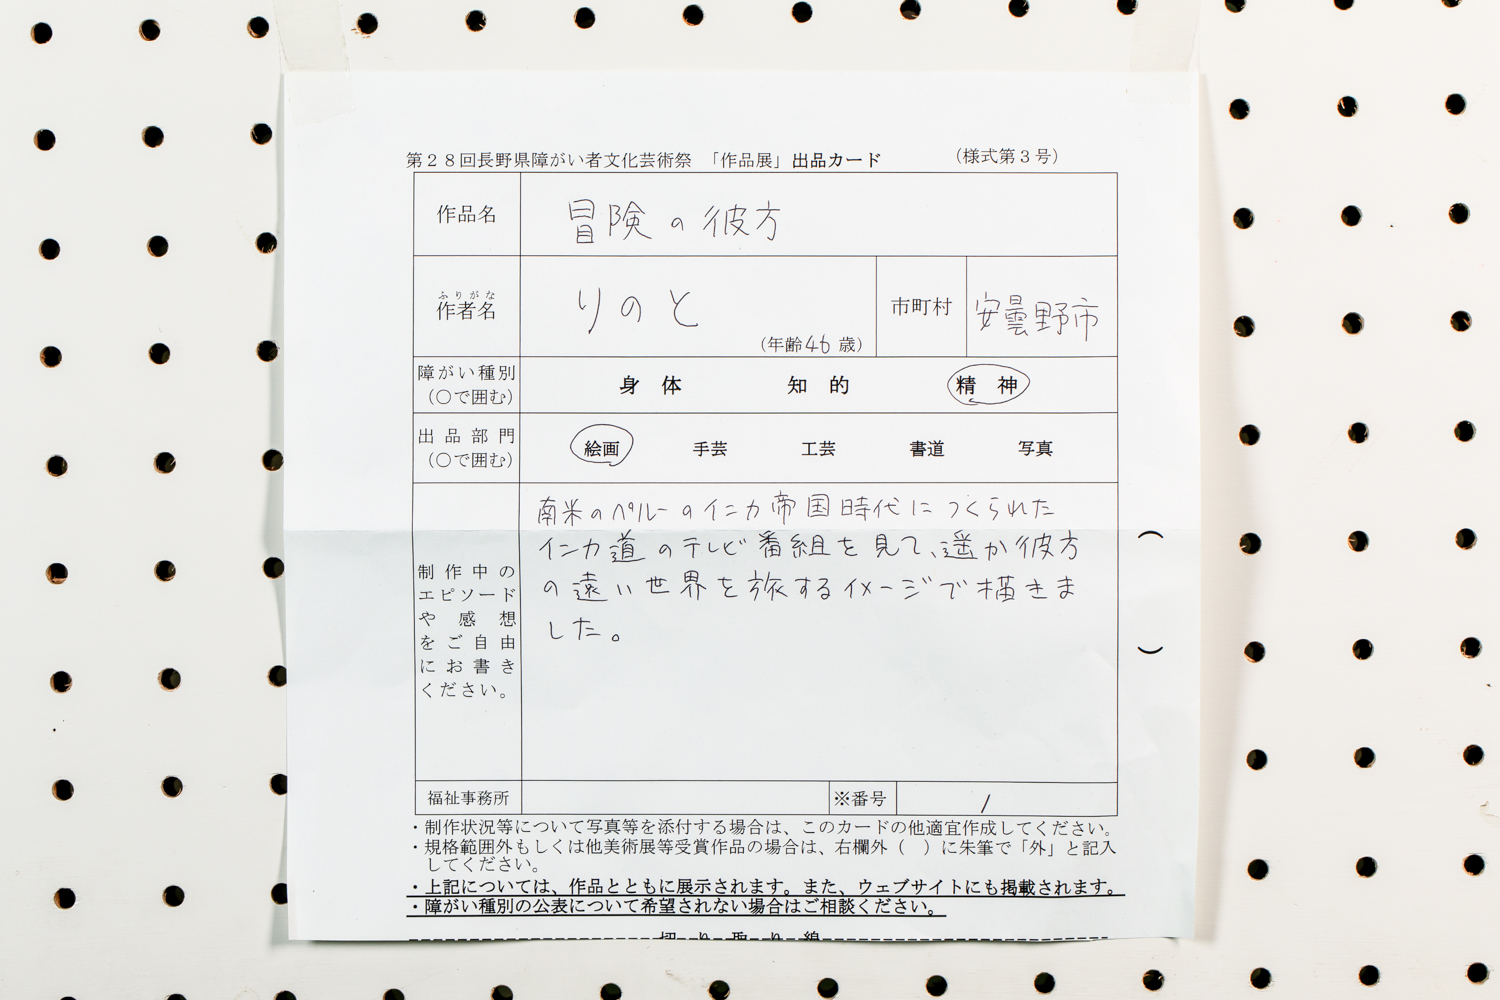 第28回長野県障がい者文化芸術祭 「作品展」出品カード (様式第3号)
作品名 冒険の彼方
ふりがな
作者名 りのと (年齢46歳) 市町村 安曇野市
障がい種別 身体 知的 精神
(〇で囲む)
出品部門 絵画 手芸 工芸 書道 写真
(〇で囲む)
南米のペルーのインカ帝国時代につくられた
インカ道のテレビ番組を見て、遥か彼方
の遠い世界を旅するイメージで描きま
した。
制作中の
エピソード
や感想
をご自由
にお書き
ください。
( )
福祉事務所 ※番号 /
・制作状況等について写真等を添付する場合は、このカードの他適宜作成してください。
・規格範囲外もしくは他美術展等受賞作品の場合は、右欄外( )に朱筆で「外」と記入
してください。
・上記については、作品とともに展示されます。また、ウェブサイトにも掲載されます。
・障がい種別の公表について希望されない場合はご相談ください。
切り取り線